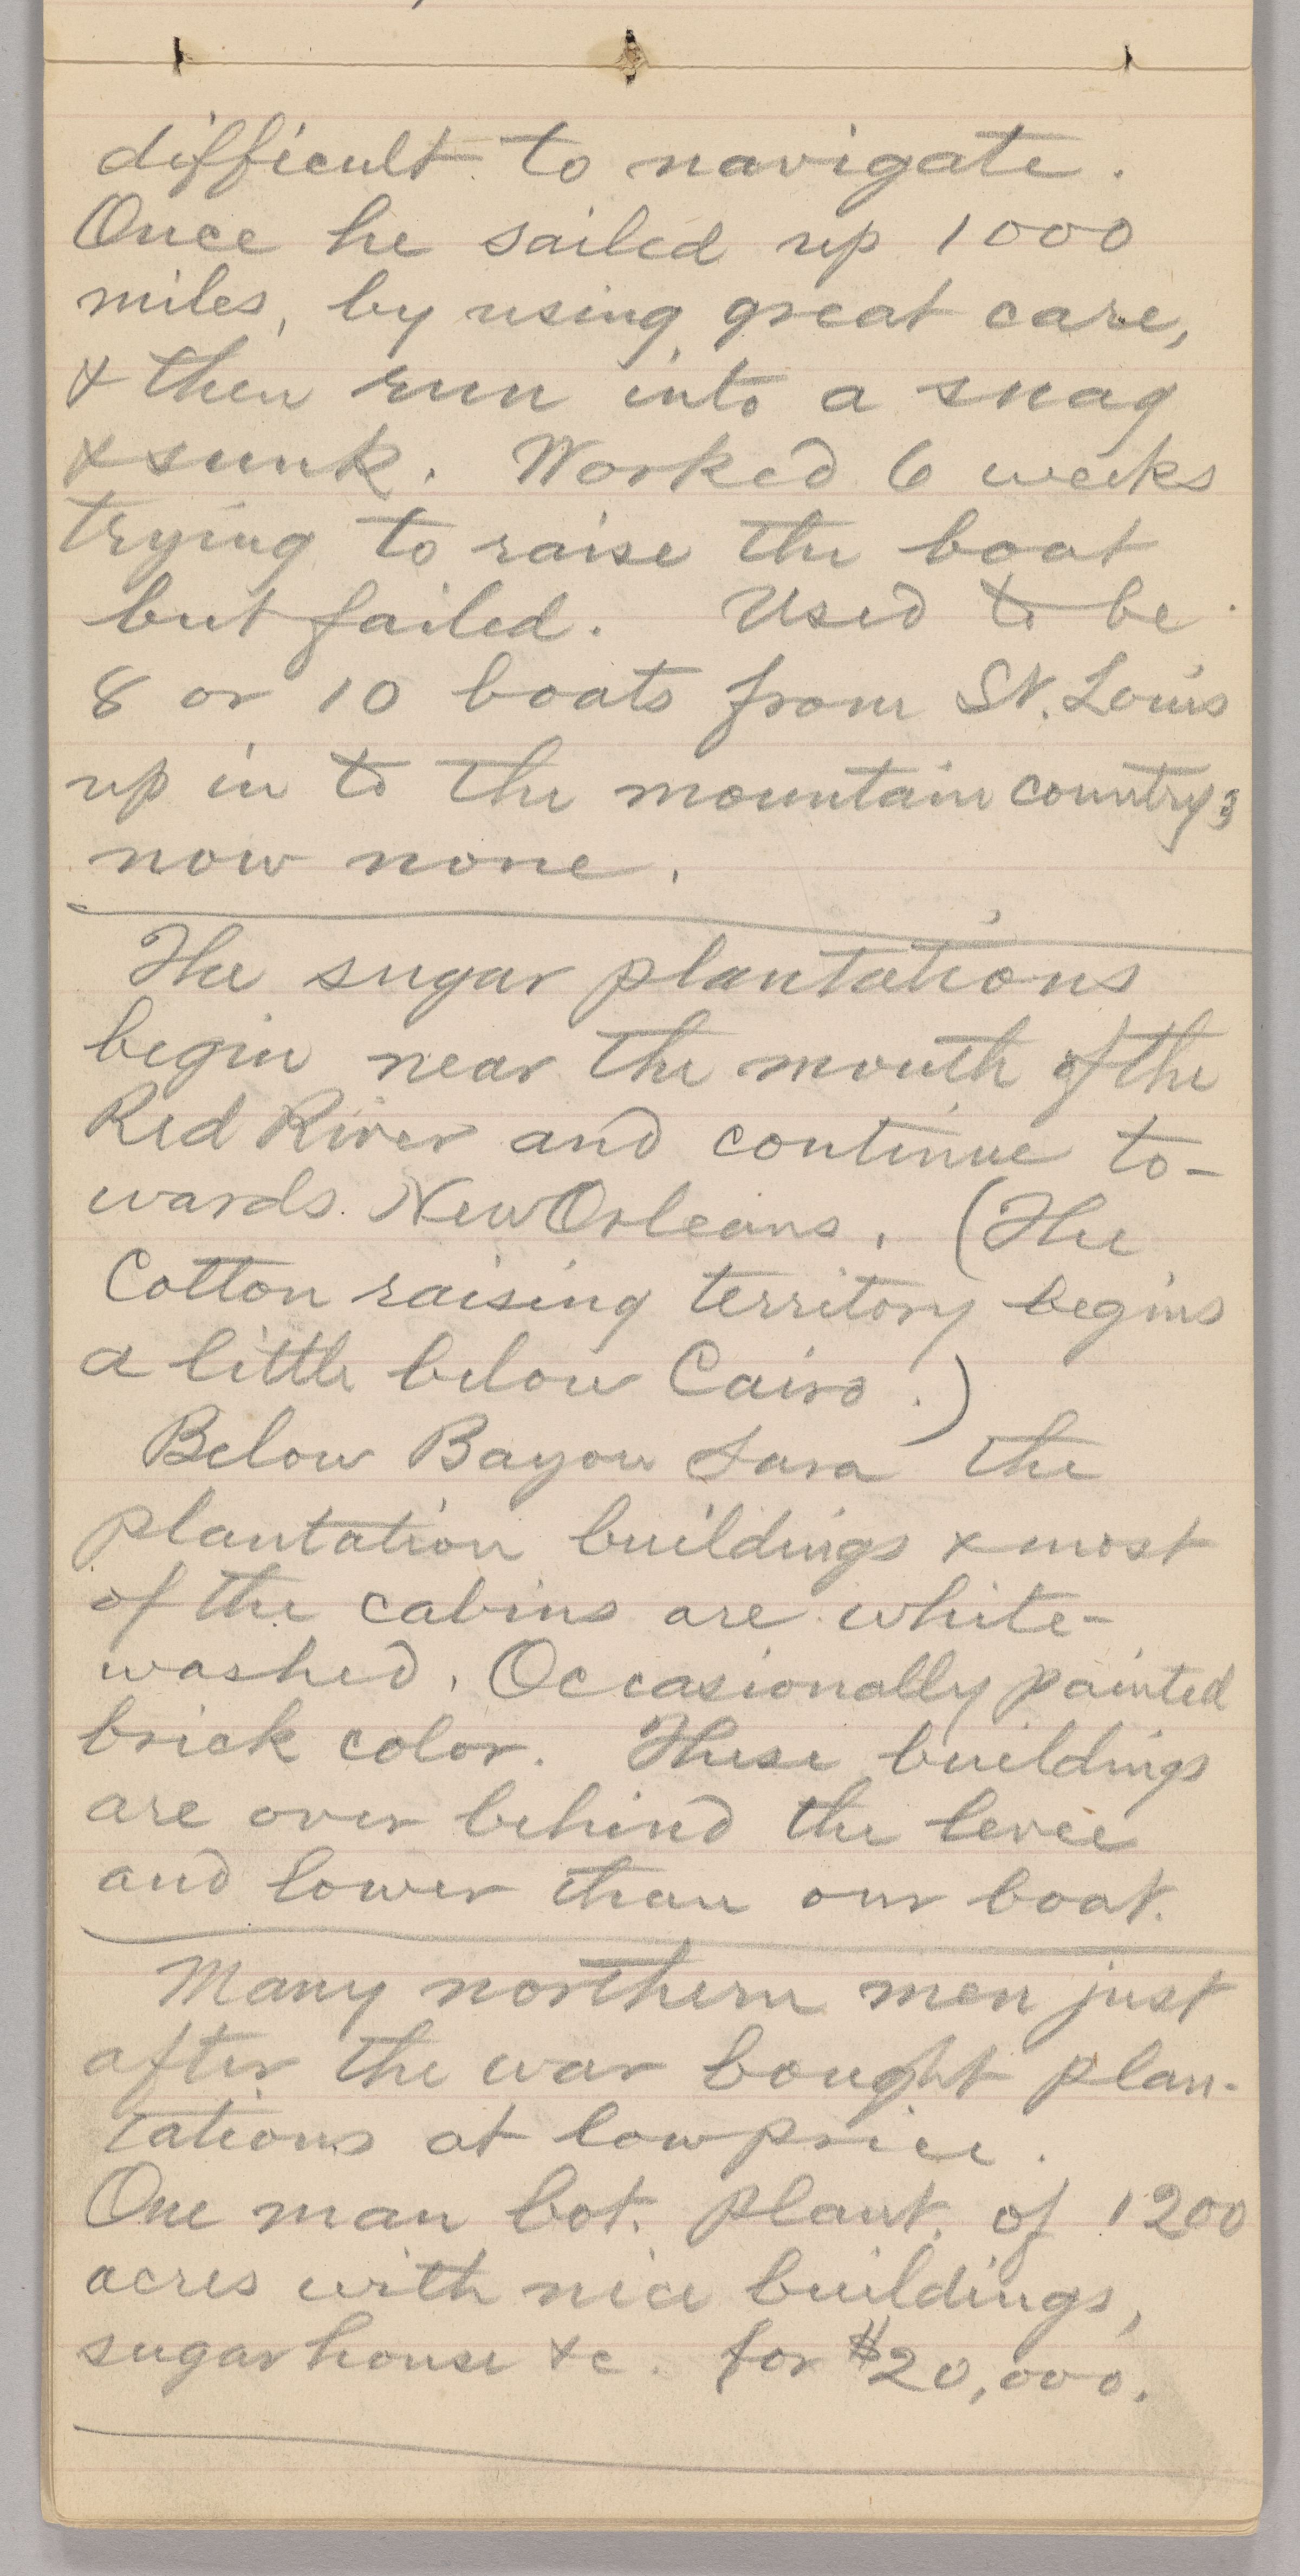 difficult to navigate.
Once he sailed up 1000
miles, by using great care,
& then run into a snag
& sunk. Worked 6 weeks
trying to raise the boat
but failed. Used to be
8 or 10 boats from St. Louis
up in to the mountain country;
now none.
The sugar plantations
begin near the mouth of the
Red River and continue to-
wards New Orleans. (The
Cotton raising territory begins
a little below Cairo.)
Below Bayou Sara the
plantation buildings & most
of the cabins are white-
washed. Occasionally painted
brick color. These buildings
are over behind the levee
and lower than our boat.
Many northern men just
after the war bought plan-
tations at low price.
One man bot. plant. of 1200
acres with nice buildings,
sugar house &c. for $20,000.